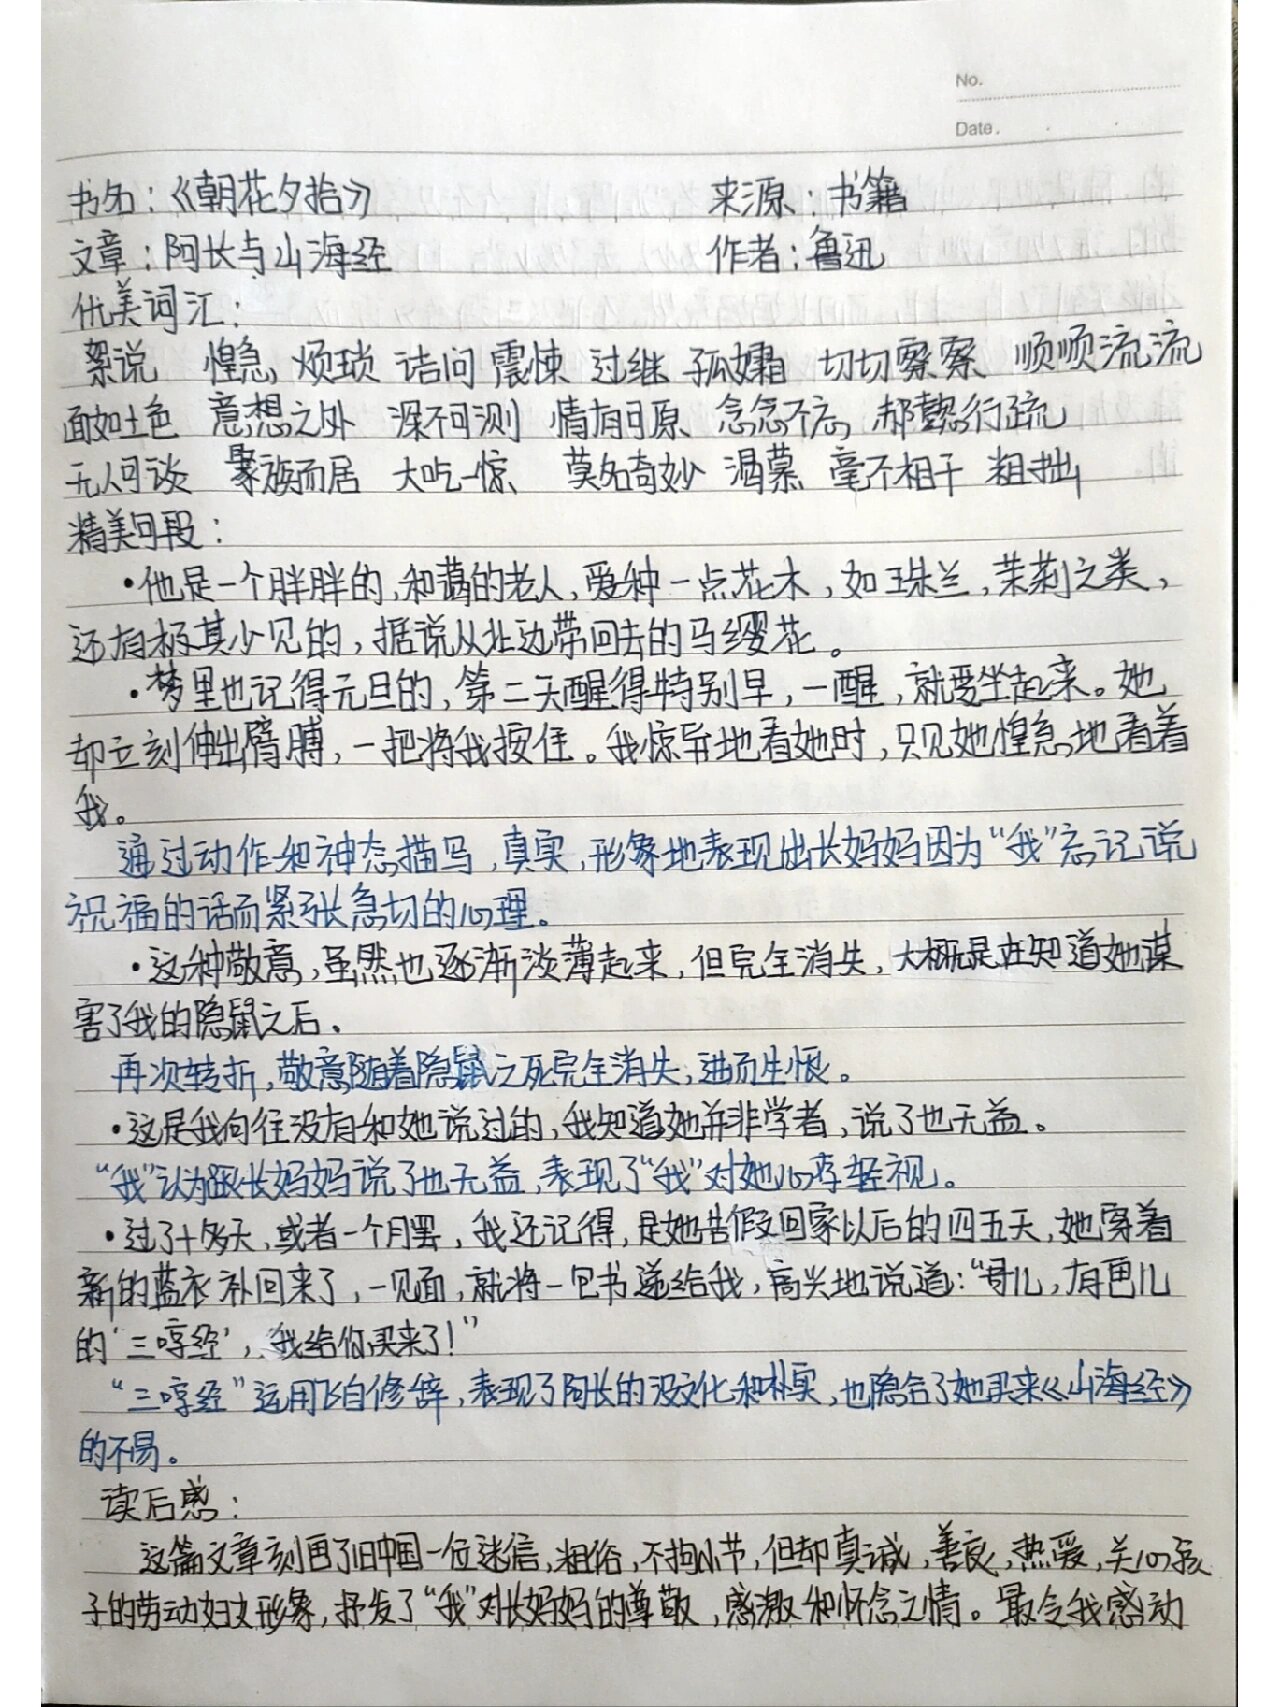 No.
Date.
书名：《朝花夕拾》 来源：书籍
文章：阿长与山海经 作者：鲁迅
优美词汇：
絮说 惶急 烦琐 诘问 震悚 过继 孤孀 切切察察 顺顺流流
面如土色 意想之外 深不可测 情有可原 念念不忘 郝懿行疏
无人可谈 聚族而居 大吃一惊 莫名奇妙 渴慕 毫不相干 粗拙
精美句段：
•他是一个胖胖的，和蔼的老人，爱种一点花木，如珠兰，茉莉之类，
还有极其少见的，据说从北边带回去的马缨花。
•梦里也记得元旦的，第二天醒得特别早，一醒，就要坐起来。她
却立刻伸出臂膊，一把将我按住。我惊异地看她时，只见她惶急地看着
我。
通过动作和神态描写，真实，形象地表现出长妈妈因为“我”忘记说
祝福的话而紧张急切的心理。
•这种敬意，虽然也逐渐淡薄起来，但完全消失，大概是在知道她谋
害了我的隐鼠之后。
再次转折，敬意随着隐鼠之死完全消失，进而生恨。
•这是我向往没有和她说过的，我知道她并非学者，说了也无益。
“我”认为跟长妈妈说了也无益，表现了“我”对她心存轻视。
•过了十多天，或者一个月罢，我还记得，是她告假回家以后的四五天，她穿着
新的蓝衣补回来了，一见面，就将一包书递给我，高兴地说道：“哥儿，有画儿
的‘三哼经’，我给你买来了！”
“三哼经”运用飞白修辞，表现了阿长的没文化和朴实，也隐含了她买来《山海经》
的不易。
读后感：
这篇文章刻画了旧中国一位迷信，粗俗，不拘小节，但却真诚，善良，热爱，关心孩
子的劳动妇女形象，抒发了“我”对长妈妈的尊敬，感激和怀念之情。最令我感动